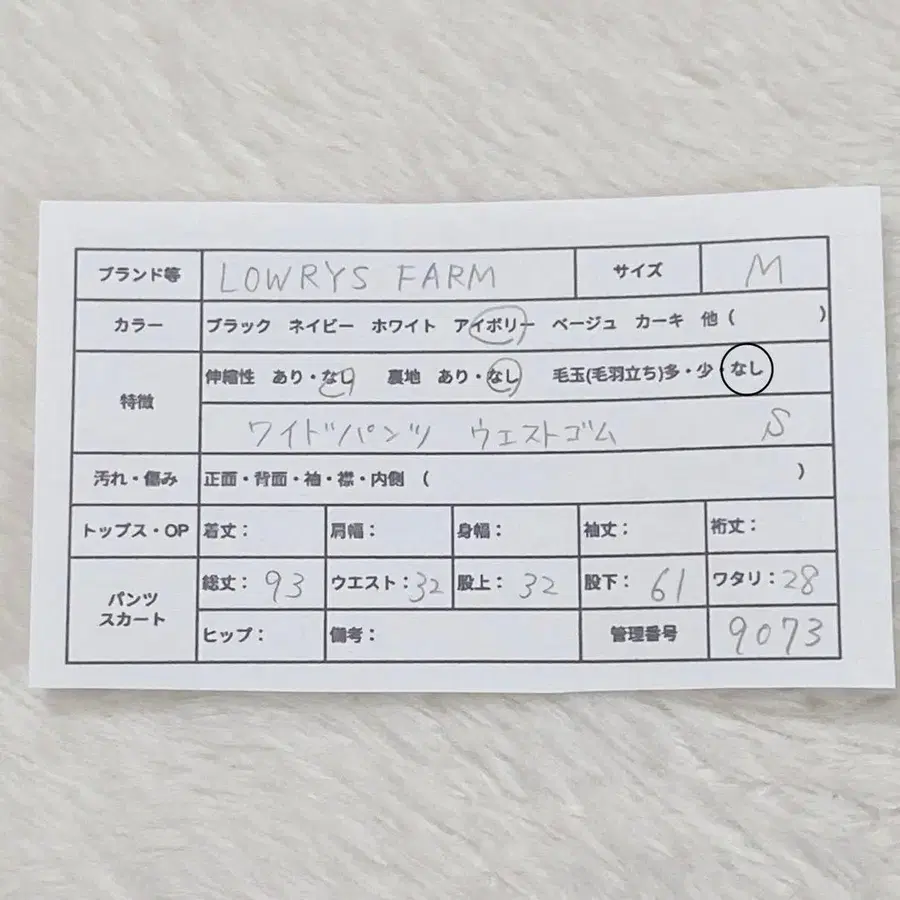 ブランド等 LOWRYS FARM サイズ M
カラー ブラック ネイビー ホワイト アイボリー ベージュ カーキ 他 ( )
特徴 伸縮性 あり・なし 裏地 あり・なし 毛玉(毛羽立ち)多・少・なし
ワイドパンツ ウエストゴム S
汚れ・傷み 正面・背面・袖・襟・内側 ( )
トップス・OP 着丈: 肩幅: 身幅: 袖丈: 裄丈:
パンツ スカート 総丈: 93 ウエスト: 32 股上: 32 股下: 61 ワタリ: 28
ヒップ: 備考: 管理番号 9073